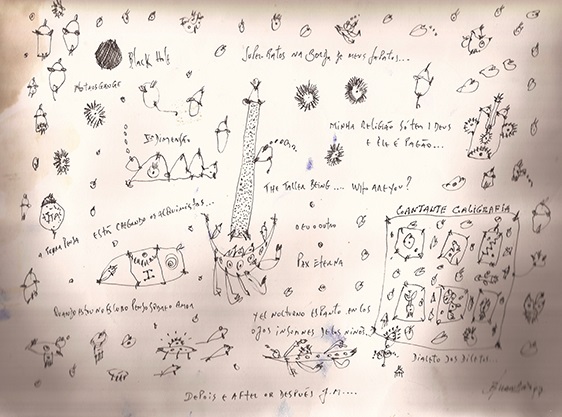 Black Hole
Solem Ratos na Borda de meus Sapatos...
Minha Religião só tem 1 Deus
e Ele é Pagão...
Iª Dimensão
The Taller Being.... Who Are you?
Cantante Caligrafia
Está chegando os Alquimistas...
O eu o outro
e
Pax Eterna
A Terra
Quando estou no Globo Penso
Amor
Y es nocturno espanto en los
ojos insomnes de los niños...
Dialeto dos Diletos...
Depois e After or Después J.M....